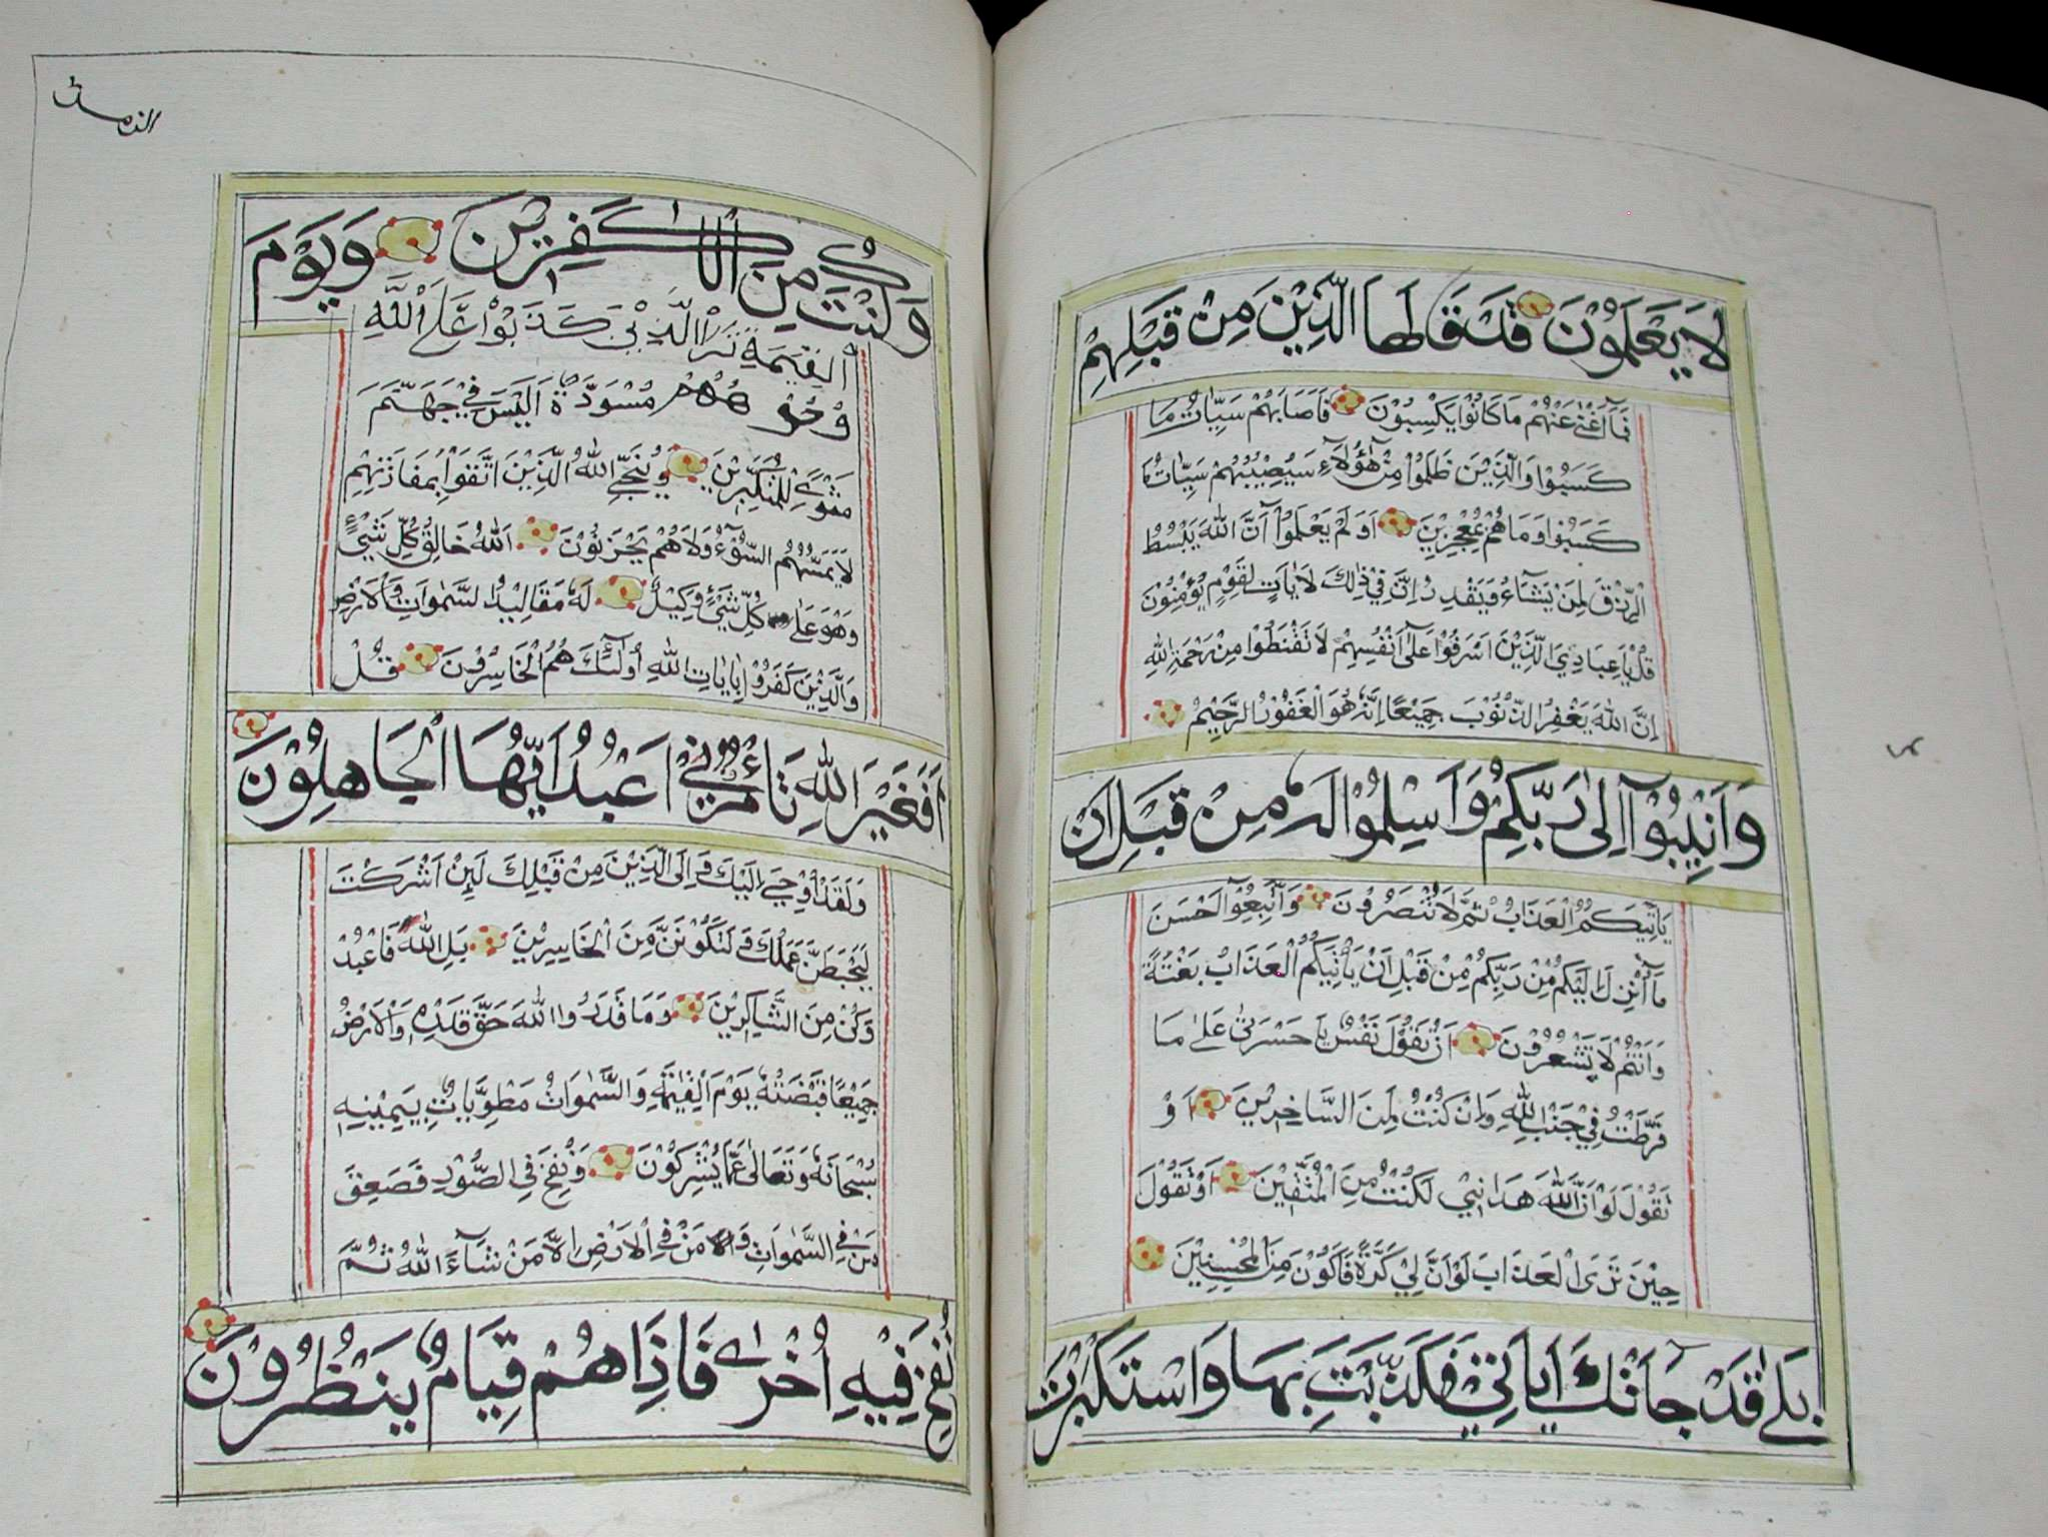 لَا يَعْلَمُوْنَ قَدْ قَالَهَا الَّذِيْنَ مِنْ قَبْلِهِمْ
فَمَآ اَغْنٰى عَنْهُمْ مَا كَانُوْا يَكْسِبُوْنَ فَاَصَابَهُمْ سَيِّاٰتُ مَا
كَسَبُوْا وَالَّذِيْنَ ظَلَمُوْا مِنْ هٰٓؤُلَآءِ سَيُصِيْبُهُمْ سَيِّاٰتُ مَا
كَسَبُوْا وَمَا هُمْ بِمُعْجِزِيْنَ اَوَلَمْ يَعْلَمُوْٓا اَنَّ اللّٰهَ يَبْسُطُ
الرِّزْقَ لِمَنْ يَشَآءُ وَيَقْدِرُ اِنَّ فِيْ ذٰلِكَ لَاٰيَاتٍ لِقَوْمٍ يُؤْمِنُوْنَ
قُلْ يَا عِبَادِيَ الَّذِيْنَ اَسْرَفُوْا عَلٰٓى اَنْفُسِهِمْ لَا تَقْنَطُوْا مِنْ رَحْمَةِ اللّٰهِ
اِنَّ اللّٰهَ يَغْفِرُ الذُّنُوْبَ جَمِيْعًا اِنَّهٗ هُوَ الْغَفُوْرُ الرَّحِيْمُ
وَاَنِيْبُوْٓا اِلٰى رَبِّكُمْ وَاَسْلِمُوْا لَهٗ مِنْ قَبْلِ اَنْ
يَاْتِيَكُمُ الْعَذَابُ ثُمَّ لَا تُنْصَرُوْنَ وَاتَّبِعُوْٓا اَحْسَنَ
مَآ اُنْزِلَ اِلَيْكُمْ مِنْ رَبِّكُمْ مِنْ قَبْلِ اَنْ يَاْتِيَكُمُ الْعَذَابُ بَغْتَةً
وَاَنْتُمْ لَا تَشْعُرُوْنَ اَنْ تَقُوْلَ نَفْسٌ يَا حَسْرَتٰى عَلٰى مَا
فَرَّطْتُ فِيْ جَنْبِ اللّٰهِ وَاِنْ كُنْتُ لَمِنَ السَّاخِرِيْنَ اَوْ
تَقُوْلَ لَوْ اَنَّ اللّٰهَ هَدَانِيْ لَكُنْتُ مِنَ الْمُتَّقِيْنَ اَوْ تَقُوْلَ
حِيْنَ تَرَى الْعَذَابَ لَوْ اَنَّ لِيْ كَرَّةً فَاَكُوْنَ مِنَ الْمُحْسِنِيْنَ
بَلٰى قَدْ جَآءَتْكَ اٰيَاتِيْ فَكَذَّبْتَ بِهَا وَاسْتَكْبَرْتَ
وَكُنْتَ مِنَ الْكٰفِرِيْنَ وَيَوْمَ
الْقِيٰمَةِ تَرَى الَّذِيْنَ كَذَبُوْا عَلَى اللّٰهِ
وُجُوْهُهُمْ مُسْوَدَّةٌ اَلَيْسَ فِيْ جَهَنَّمَ
مَثْوًى لِلْمُتَكَبِّرِيْنَ وَيُنَجِّى اللّٰهُ الَّذِيْنَ اتَّقَوْا بِمَفَازَتِهِمْ
لَا يَمَسُّهُمُ السُّوْٓءُ وَلَا هُمْ يَحْزَنُوْنَ اَللّٰهُ خَالِقُ كُلِّ شَيْءٍ
وَهُوَ عَلٰى كُلِّ شَيْءٍ وَكِيْلٌ لَهٗ مَقَالِيْدُ السَّمٰوَاتِ وَالْاَرْضِ
وَالَّذِيْنَ كَفَرُوْا بِاٰيَاتِ اللّٰهِ اُولٰٓئِكَ هُمُ الْخَاسِرُوْنَ قُلْ
اَفَغَيْرَ اللّٰهِ تَاْمُرُوْنِّيْ اَعْبُدُ اَيُّهَا الْجَاهِلُوْنَ
وَلَقَدْ اُوْحِيَ اِلَيْكَ وَاِلَى الَّذِيْنَ مِنْ قَبْلِكَ لَئِنْ اَشْرَكْتَ
لَيَحْبَطَنَّ عَمَلُكَ وَلَتَكُوْنَنَّ مِنَ الْخَاسِرِيْنَ بَلِ اللّٰهَ فَاعْبُدْ
وَكُنْ مِنَ الشَّاكِرِيْنَ وَمَا قَدَرُوا اللّٰهَ حَقَّ قَدْرِهٖ وَالْاَرْضُ
جَمِيْعًا قَبْضَتُهٗ يَوْمَ الْقِيٰمَةِ وَالسَّمٰوَاتُ مَطْوِيَّاتٌ بِيَمِيْنِهٖ
سُبْحَانَهٗ وَتَعَالٰى عَمَّا يُشْرِكُوْنَ وَنُفِخَ فِي الصُّوْرِ فَصَعِقَ
مَنْ فِي السَّمٰوَاتِ وَمَنْ فِي الْاَرْضِ اِلَّا مَنْ شَآءَ اللّٰهُ ثُمَّ
نُفِخَ فِيْهِ اُخْرٰى فَاِذَا هُمْ قِيَامٌ يَنْظُرُوْنَ